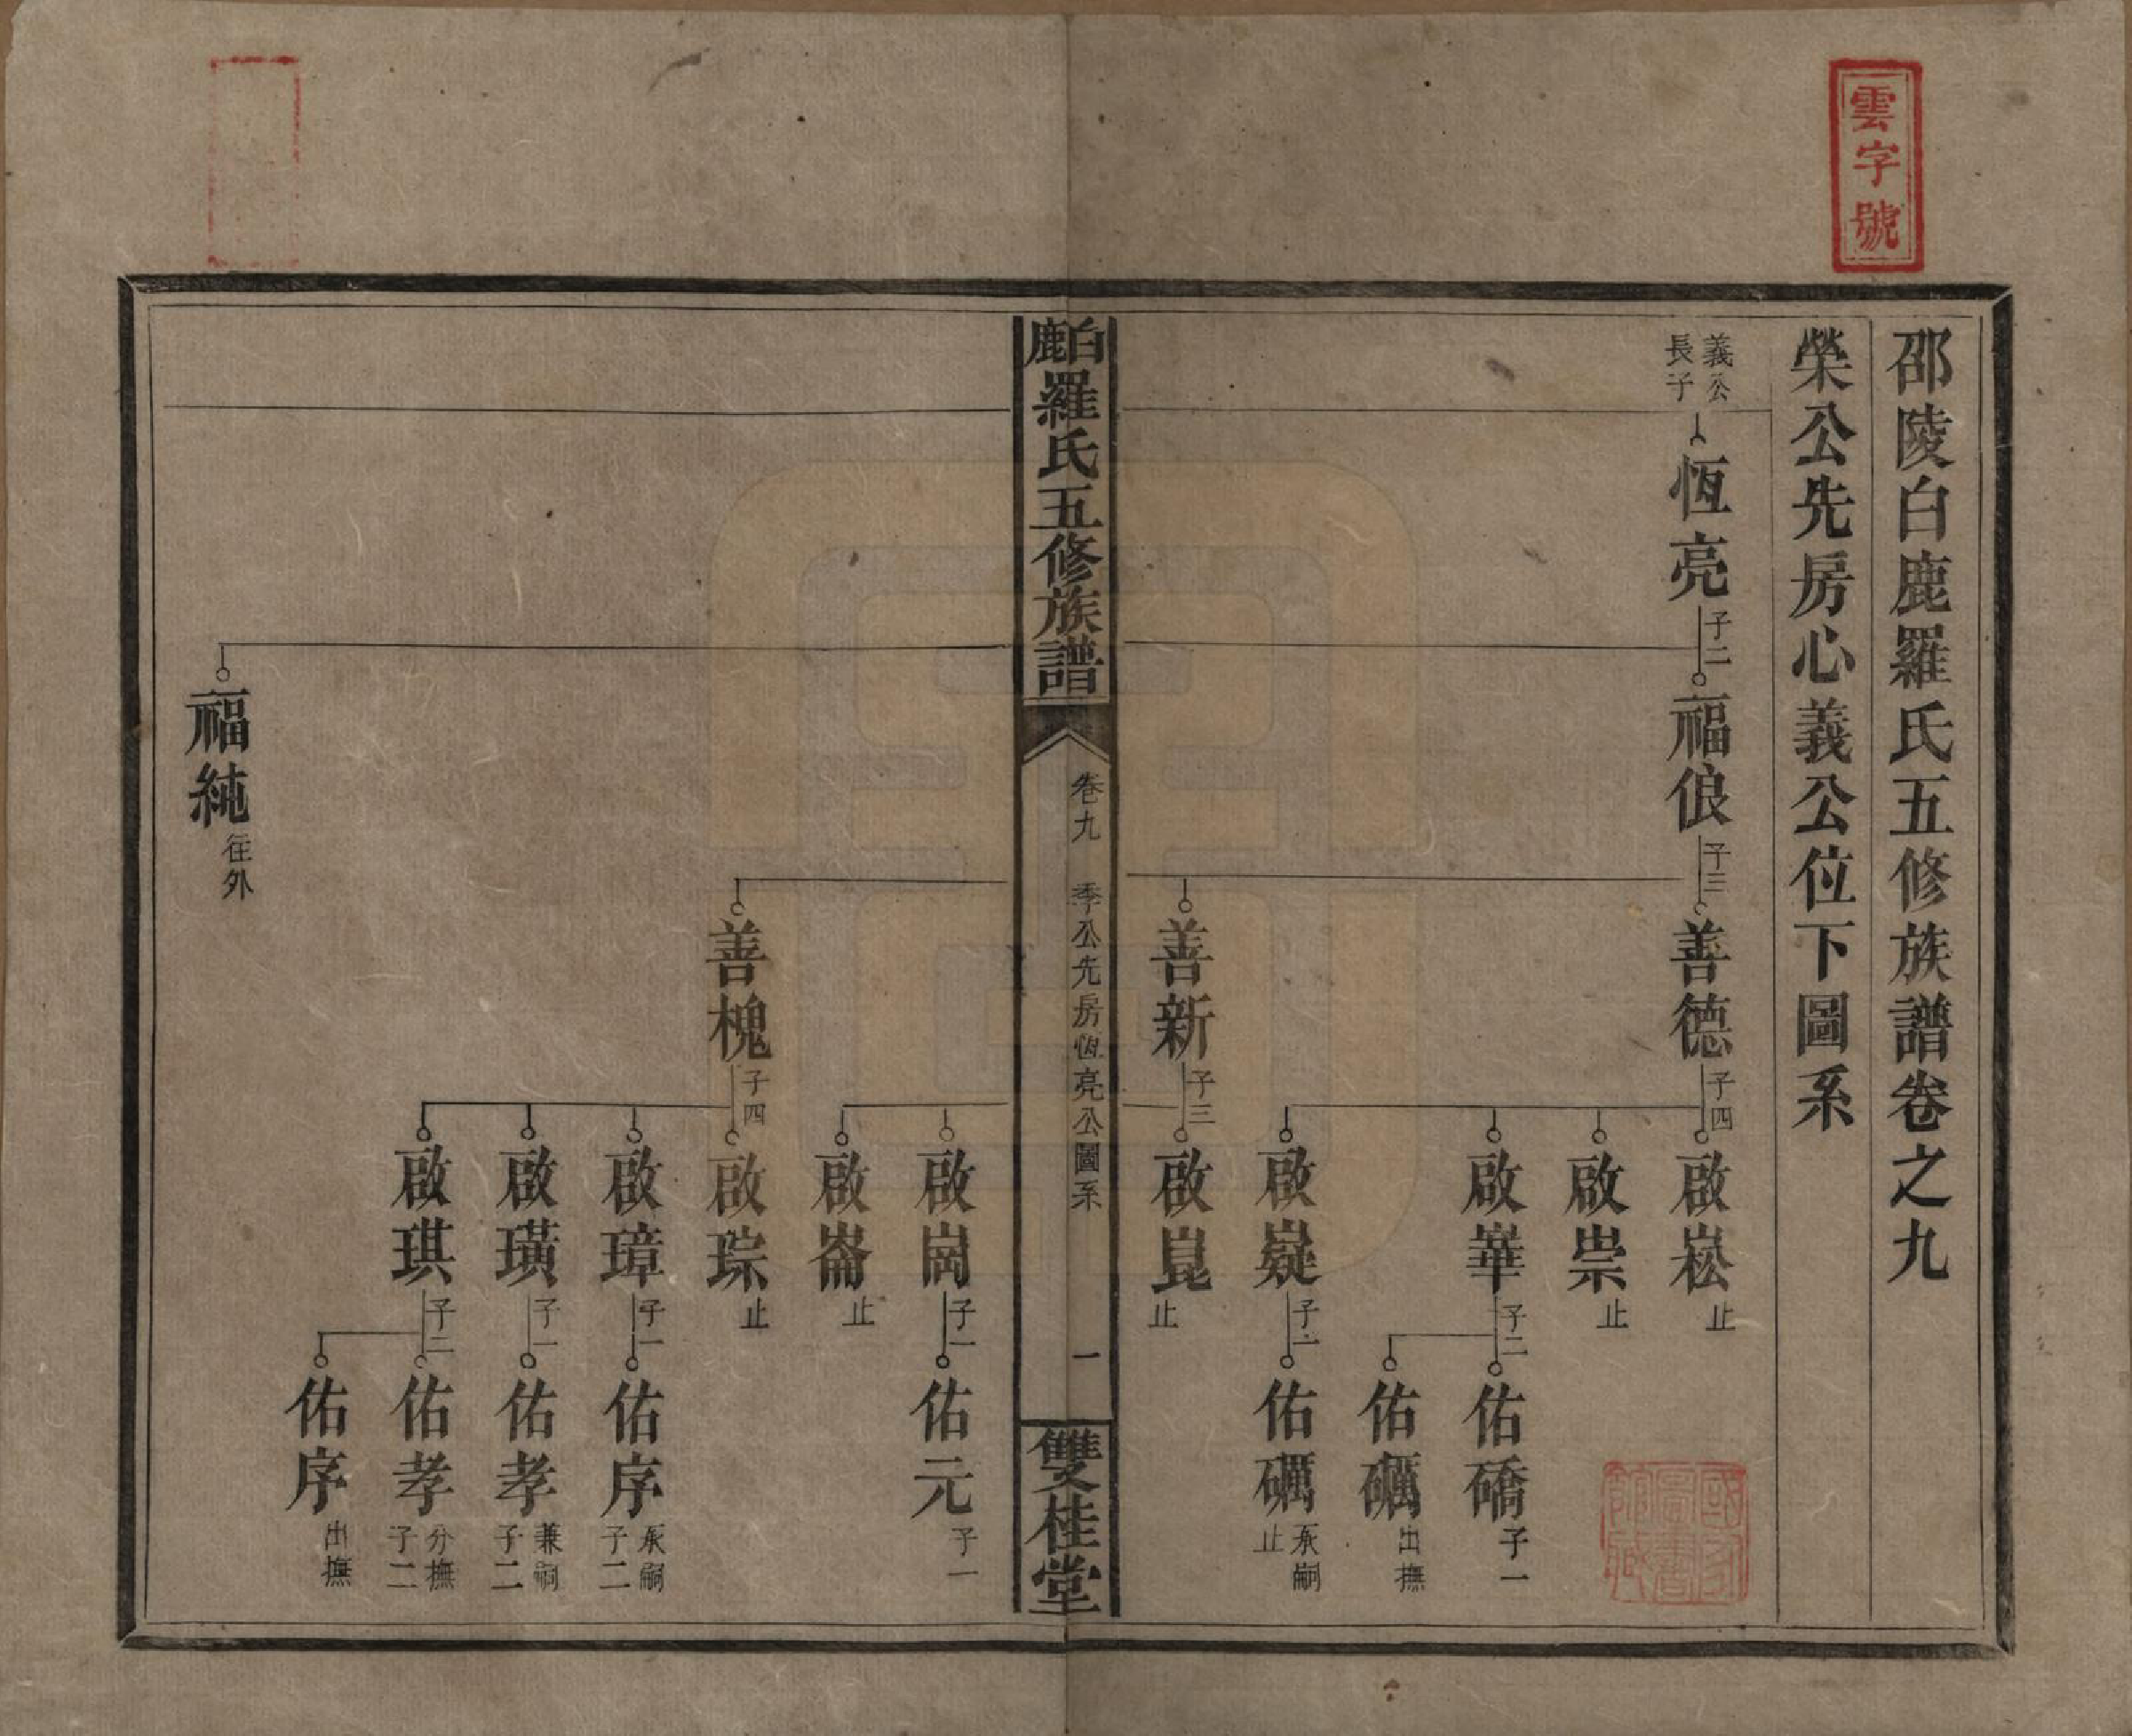 雲字號
邵陵白鹿羅氏五修族譜卷之九
榮公先房心義公位下圖系
義公
長子
恆亮 子二
福俍 子三
善德 子四
啟崧 止
啟祟 止
啟崋 子二
佑礄 子一
佑礪 出撫
啟嶷 子一
佑礪 承嗣 止
善新 子三
啟崑 止
白鹿羅氏五修族譜
卷九 季公先房恆亮公圖系 一
雙桂堂
啟崗 子一
佑元 子一
啟崙 止
善槐 子四
啟琮 止
啟璋 子一
佑序 承嗣 子二
啟璜 子一
佑孝 兼嗣 子二
啟琪 子二
佑孝 分撫 子二
佑序 出撫
福純 往外